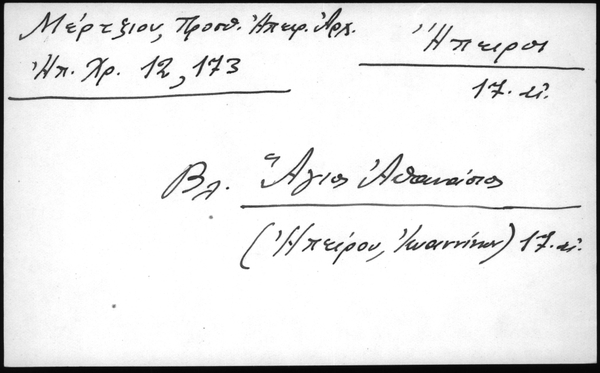 Μέρτζιου, Προσθ. Ἠπειρ. Ἀρχ.
Ἠπ. Χρ. 12, 173
Ἤπειρος
17. αἰ.
Βλ. Ἅγιος Ἀθανάσιος
(Ἠπείρου, Ἰωαννίνων) 17. αἰ.